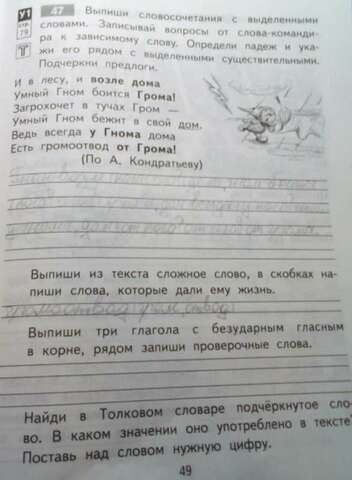 У1
стр. 79
Т
47 Выпиши словосочетания с выделенными
словами. Записывай вопросы от слова-команди-
ра к зависимому слову. Определи падеж и ука-
жи его рядом с выделенными существительными.
Подчеркни предлоги.
И в лесу, и возле дома
Умный Гном боится Грома!
Загрохочет в тучах Гром —
Умный Гном бежит в свой дом.
Ведь всегда у Гнома дома
Есть громоотвод от Грома!
(По А. Кондратьеву)
Выпиши из текста сложное слово, в скобках на-
пиши слова, которые дали ему жизнь.
громоотвод (гром, отвод)
Выпиши три глагола с безударным гласным
в корне, рядом запиши проверочные слова.
Найди в Толковом словаре подчёркнутое сло-
во. В каком значении оно употреблено в тексте?
Поставь над словом нужную цифру.
49